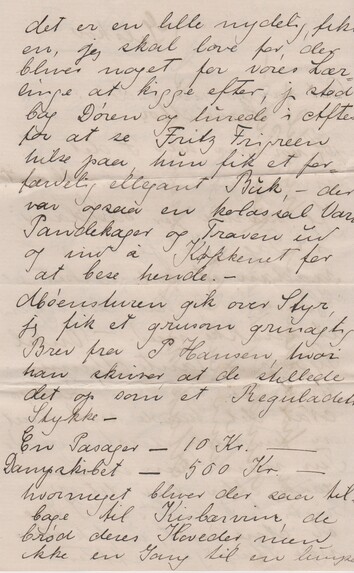 det er en lille nydelig, fik
en, jeg skal love for, der
bliver noget for vores Lær
linge at kigge efter, j stod
bag Døren og lurede i Aften
for at se Fritz
hilse paa, hun fik et for
færdelig ellegant Buk, – der
var ogsaa en kolossal Van
Pandekager og ud
og ind i Køkkenet for
at bese hende. –
Møensturen gik over Styr,
jeg fik et grusom grinagtig
Brev fra P Hansen, hvor
han skriver at de stillede
det op som et Reguladetri
Stykke –
En Pasager – 10 Kr. —
Dampskibet – 500 Kr. —
hvormeget bliver der saa til
bage til de
brød deres Hoveder men
ikke en Gang til en